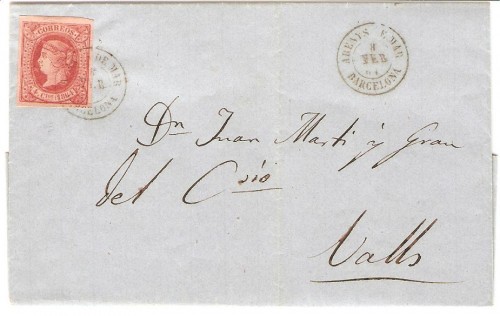 CORREOS
DE MAR
BARCELONA
ARENYS E.MAR
8
FEB
64
BARCELONA
Dn Juan Marti y Grau
del Crio
Valls